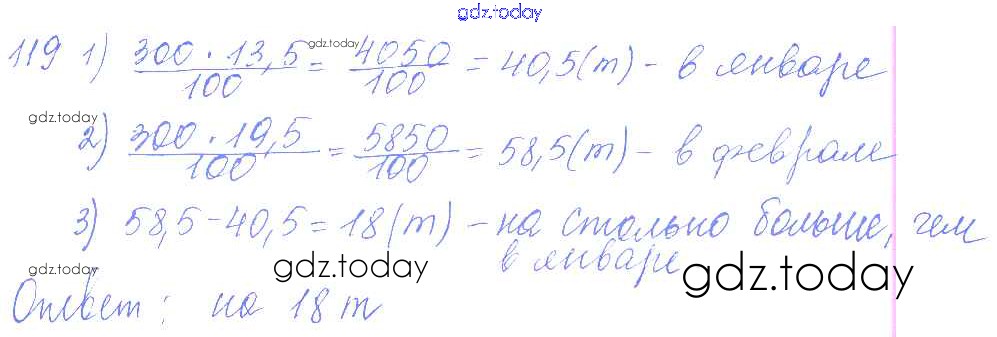 gdz.today
119 1) 300 · 13,5 / 100 = 4050 / 100 = 40,5(т) - в январе
gdz.today
gdz.today
2) 300 · 19,5 / 100 = 5850 / 100 = 58,5(т) - в феврале
3) 58,5 - 40,5 = 18(т) - на столько больше, чем
в январе
gdz.today
gdz.today
gdz.today
Ответ: на 18 т